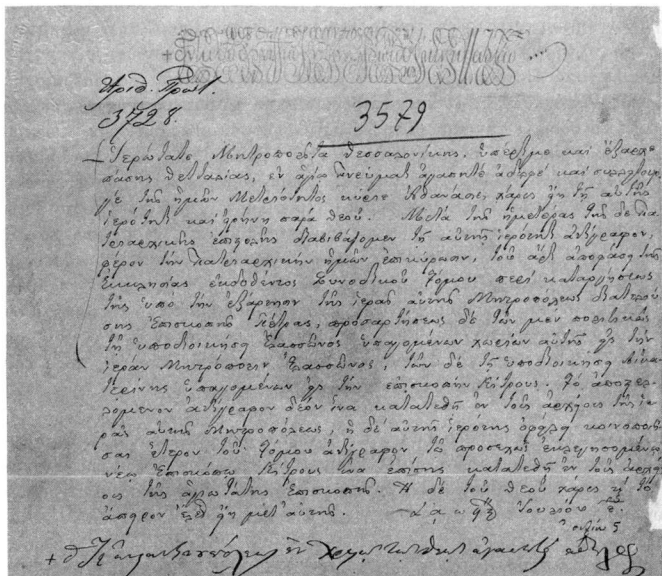 Ἀριθ. Πρωτ.
3728.
3579
Ἱερώτατε Μητροπολῖτα Θεσσαλονίκης, ὑπέρτιμε καὶ ἔξαρχε
πάσης Θετταλίας, ἐν ἁγίῳ Πνεύματι ἀγαπητὲ ἀδελφὲ καὶ συλλειτουρ-
γὲ τῆς ἡμῶν Μετριότητος κύριε Ἀθανάσιε, χάρις εἴη τῇ αὐτῆς
ἱερότητι καὶ εἰρήνη παρὰ Θεοῦ. Μετὰ τῆς ἡμετέρας τῆσδε πα-
τριαρχικῆς ἐπιστολῆς διαβιβάζομεν τῇ αὐτῆς ἱερότητι ἀντίγραφον,
φέρον τὴν πατριαρχικὴν ἡμῶν ἐπικύρωσιν, τοῦ ἄρτι ἀποφάσει τῆς
Ἐκκλησίας ἐκδοθέντος Συνοδικοῦ Τόμου περὶ καταργήσεως
τῆς ὑπὸ τὴν ἐξάρτησιν τῆς ἱερᾶς αὐτῆς Μητροπόλεως διατελού-
σης Ἐπισκοπῆς Πέτρας, προσαρτήσεως δὲ τῶν μὲν πολιτικῶς
τῇ ὑποδιοικήσει Ἐλασσῶνος ὑπαγομένων χωρίων αὐτῆς εἰς τὴν
ἱερὰν Μητρόπολιν Ἐλασσῶνος, τῶν δὲ τῇ ὑποδιοικήσει Αἰκα-
τερίνης ὑπαγομένων εἰς τὴν ἐπισκοπὴν Κίτρους. Τὸ ἀποστελ-
λόμενον ἀντίγραφον δέον ἵνα κατατεθῇ ἐν τοῖς ἀρχείοις τῆς ἱε-
ρᾶς αὐτῆς Μητροπόλεως, ἡ δὲ αὐτῆς ἱερότης ὀφείλει κοινοποιή-
σαι ἕτερον τοῦ Τόμου ἀντίγραφον τῷ προσεχῶς ἐκλεγησομένῳ
νέῳ Ἐπισκόπῳ Κίτρους ἵνα ἐπίσης κατατεθῇ ἐν τοῖς ἀρχεί-
οις τῆς ἁγιωτάτης Ἐπισκοπῆς. Ἡ δὲ τοῦ Θεοῦ χάρις καὶ τὸ
ἄπειρον ἔλεος εἴη μετ' αὐτῆς. Ἰουλίου
+ ὁ Κωνσταντινουπόλεως ἐν Χριστῷ ἀγαπητὸς ἀδελφὸς